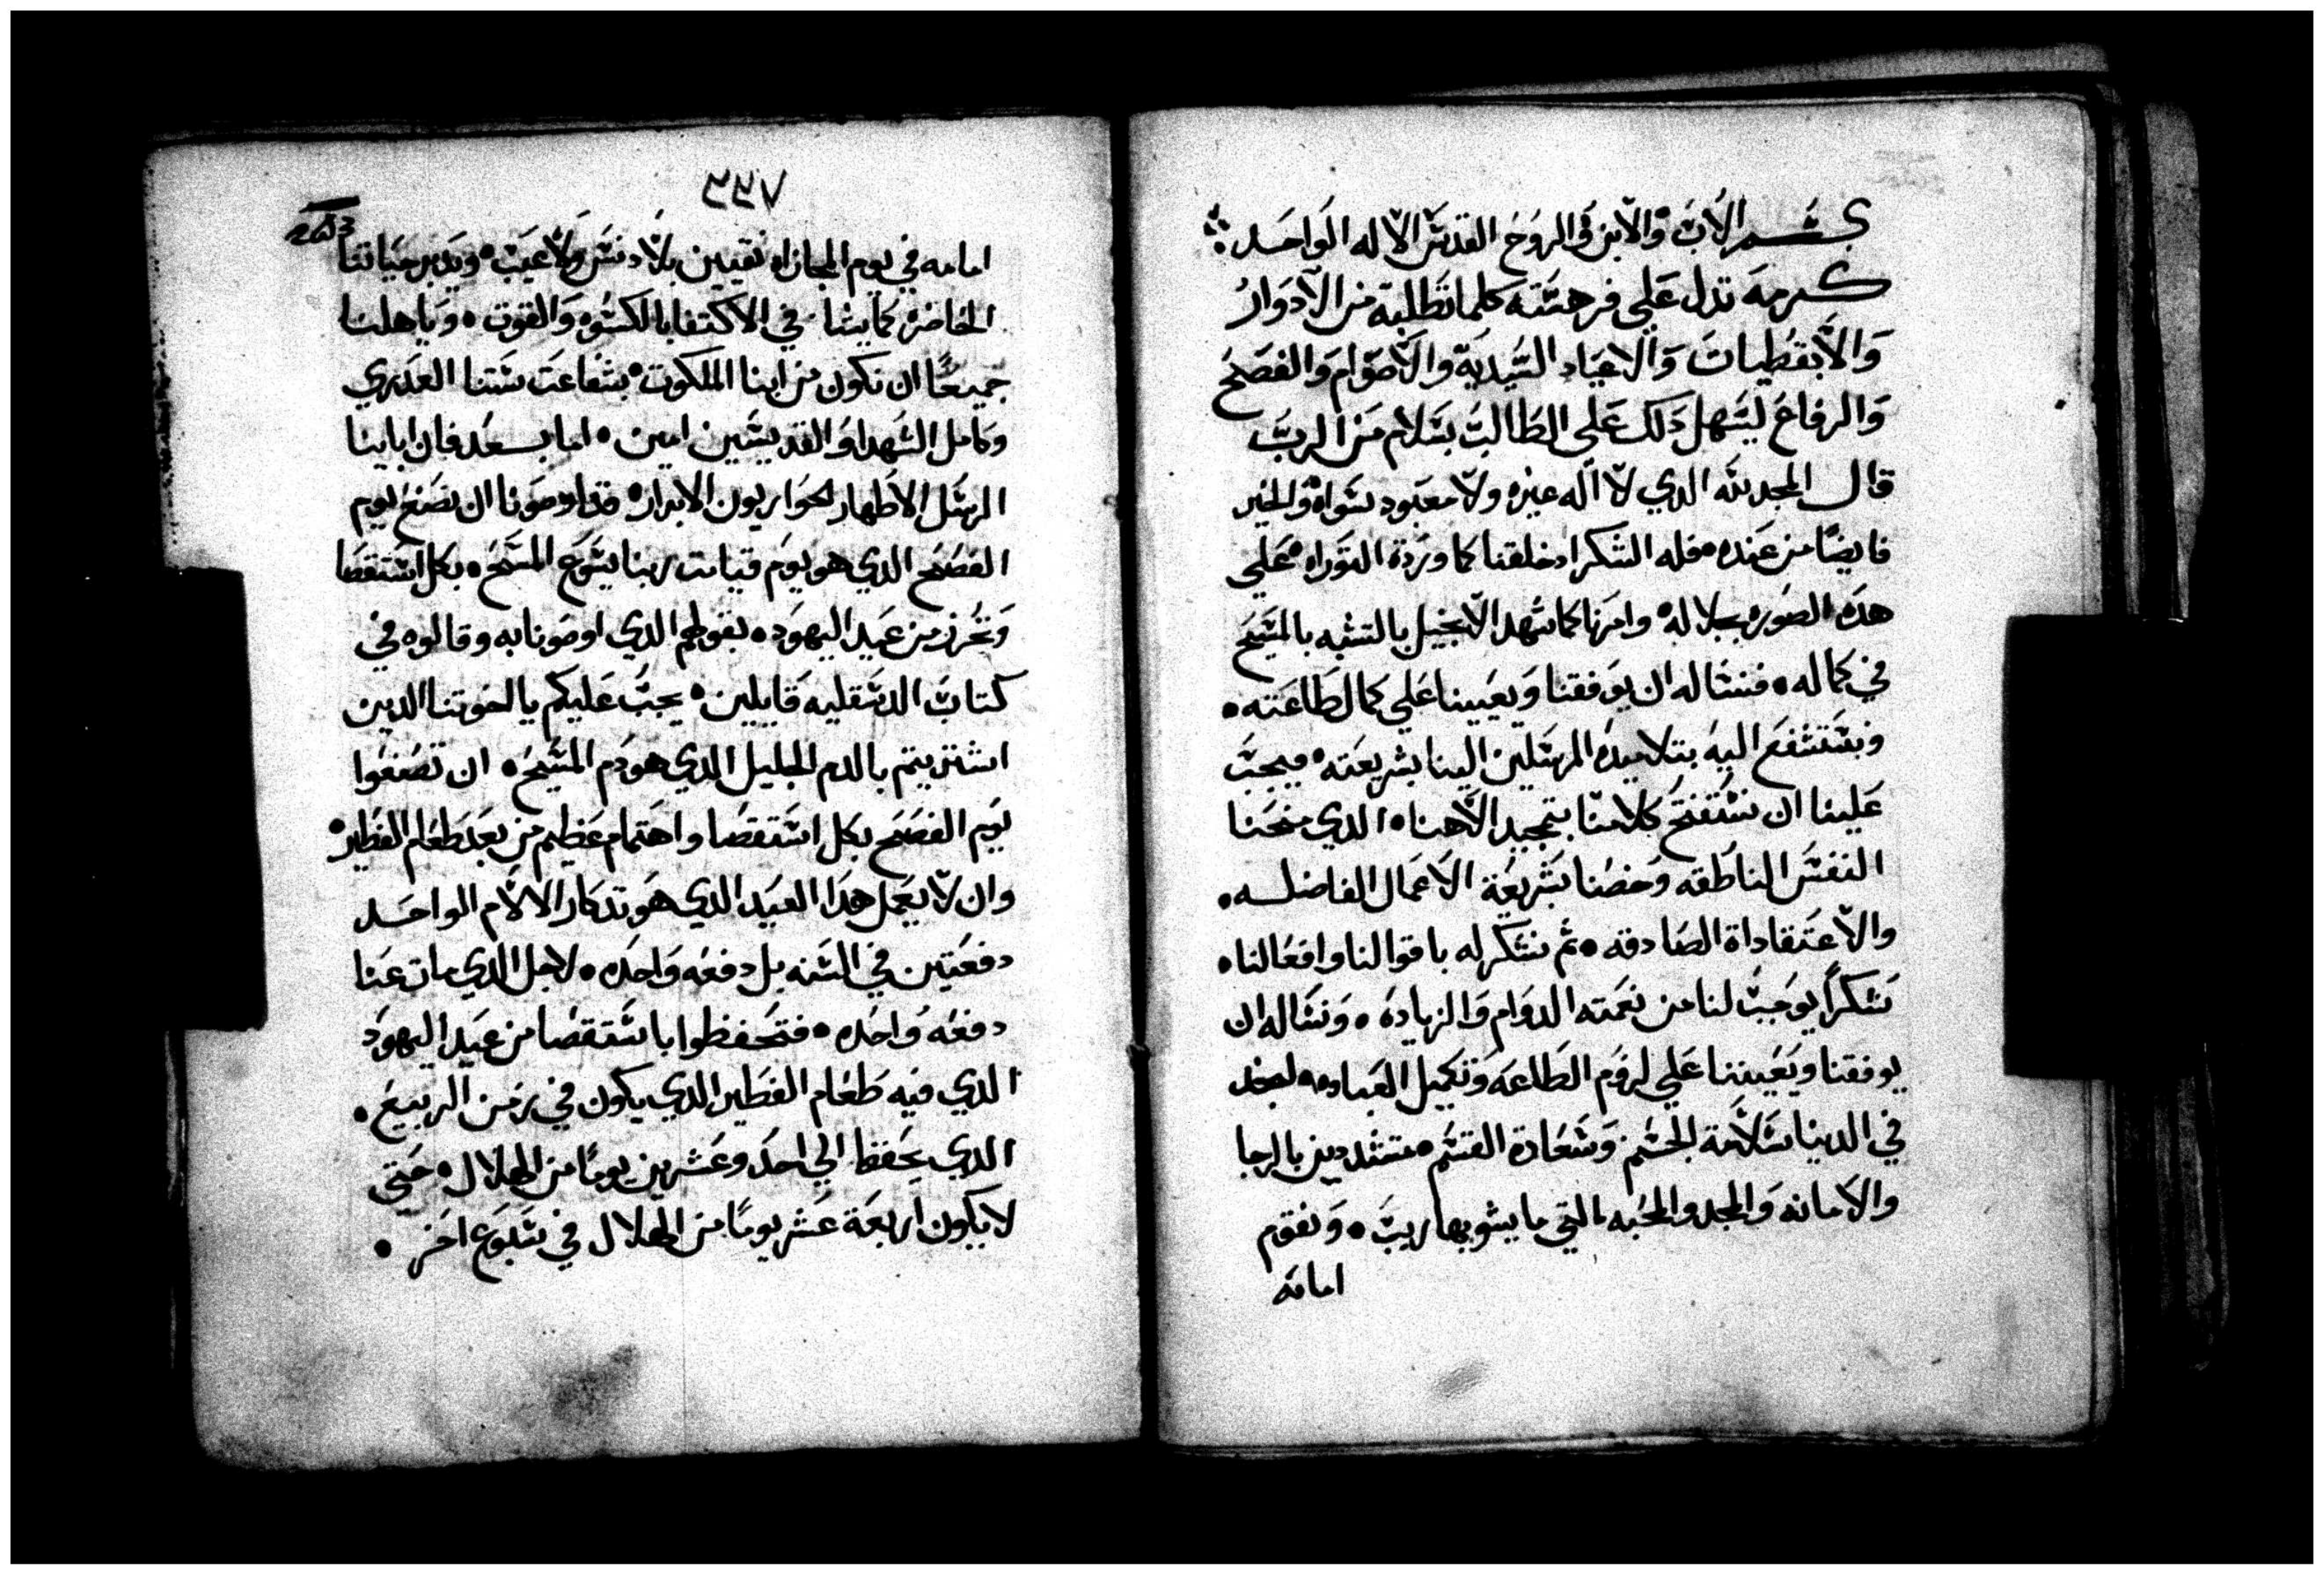 بسم الاب والابن والروح القدس الاله الواحد
كرمه تدل علي فرهسته كلما تطلبة من الادوار
والابقطيات والاعياد السيدية والاصوام والفصح
والرفاع ليسهل دلك علي الطالب بسلام من الرب
قال المجد لله الدي لا اله غيره ولا معبود سواه والخير
فايضا من عنده فله الشكر اد خلقنا كما وردة التوراه علي
هده الصوره بجلاله وامرنا كما شهد الانجيل بالتشبه بالمسيح
في كماله فنساله ان يوفقنا ويعيينا علي كمال طاعته
ونستشفع اليه بتلاميده المرسلين الينا بشريعته فيجب
علينا ان نستفتح كلامنا بتمجيد الاهنا الدي منحنا
النفس الناطقه وخصنا بشريعة الاعمال الفاضله
والاعتقاداة الصادقه ثم نشكر له باقوالنا وافعالنا
شكرا يوجب لنا من نعمته الدوام والزياده ونساله ان
يوفقنا ويعيننا علي لزوم الطاعه وتكميل العباده لنجد
في الدنيا سلامة الجسم وسعادة القسم متشددين بالرجا
والامانه والمجد والمحبه التي ما يشوبها ريب ونقوم
امامه
٣٣٧
253
امامه في يوم المجازاه نقيين بلا دنس ولا عيب ويدبر حياتنا
الحاضره كما يشا في الاكتفا بالكسوه والقوت وياهلنا
جميعا ان نكون من ابنا الملكوت بشفاعت ستنا العدري
وكامل الشهدا والقديسين امين اما بعد فان ابابنا
الرسل الاطهار الحواريون الابرار قد اوصونا ان نصنع يوم
الفصح الدي هو يوم قيامت ربنا يسوع المسيح بكل استقصا
ونحرز من عيد اليهود بقولهم الدي اوصونا به وقالوه في
كتاب الدسقليه قايلين يجب عليكم يا اخوتنا الدين
اشتريتم بالدم الجليل الدي هو دم المسيح ان تصنعوا
يوم الفصح بكل استقصا واهتمام عظيم من بعد طعام الفطير
وان لا يعمل هدا العيد الدي هو تدكار الالام الواحد
دفعتين في السنه بل دفعه واحده لاجل الدي مات عنا
دفعه واحده فتحفظوا باستقصا من عيد اليهود
الدي فيه طعام الفطير الدي يكون في زمن الربيع
الدي يحفظ الي احد وعشرين يوما من الهلال حتي
لا يكون اربعة عشر يوما من الهلال في سبوع اخر